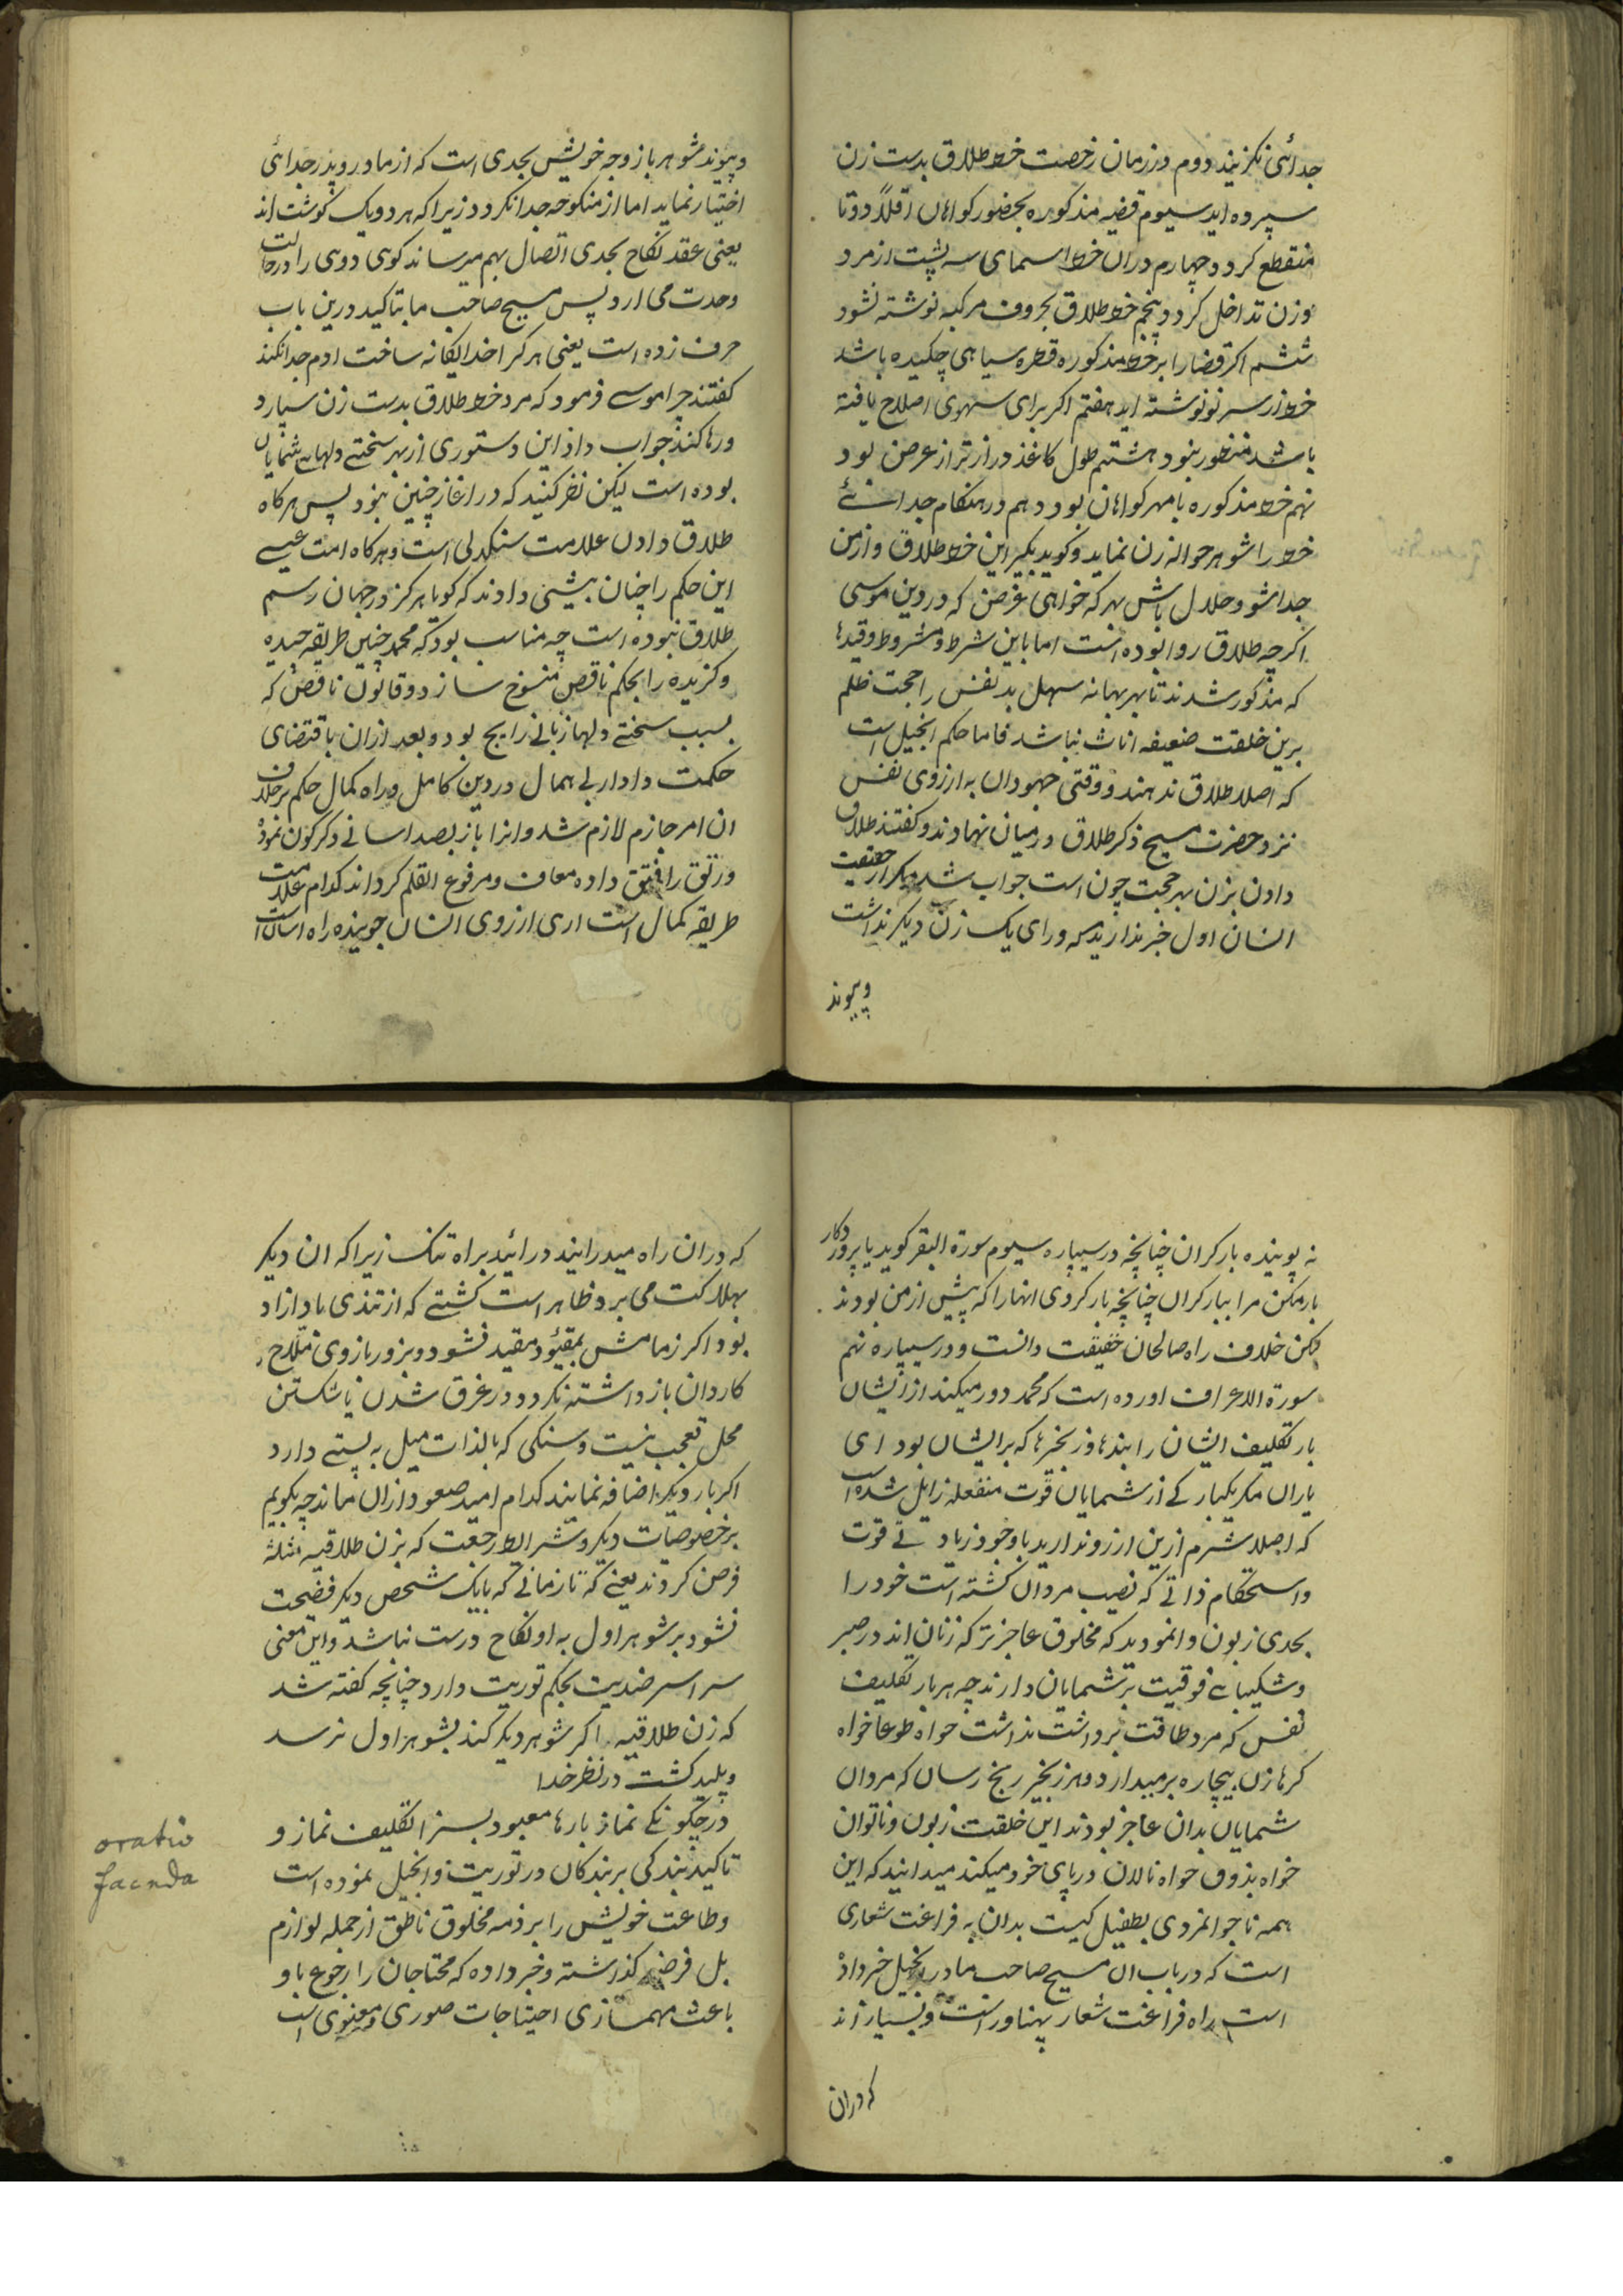 جدائی نکزینید دوم در زمان رخصت خط طلاق بدست زن
سپرده اید سیوم قضیه مذکوره بحضور کواهان اقلاً دو تا
منقطع کردد چهارم دران خط اسمای سه پشت از مرد
و زن تداخل کردد پنجم خط طلاق بحروف مرکبه نوشته نشود
ششم اکر قضا را بر خط مذکوره قطره سیاهی چکیده باشد
خط از سر نو نوشته اید هفتم اکر برای سهوی اصلاح یافته
باشد منظور نبود هشتم طول کاغذ دراز تر از عرض بود
نهم خط مذکوره با مهر کواهان بود دهم در هنکام جدائی
خط را شوهر حواله زن نماید و کوید بکیر این خط طلاق و از من
جدا شو و حلال باش بهر که خواهی غرض که در دین موسی
اکرچه طلاق روا بوده است اما باین شرط و مشروط و قیدها
که مذکور شدند تا بهر بهانه سهل بد نفس را حجت ظلم
برین خلقت ضعیفه اناث نباشد فاما حکم انجیل است
که اصلا طلاق ندهند و وقتی جهودان به ارزوی نفس
نزد حضرت مسیح ذکر طلاق در میان نهادند و کفتند طلاق
دادن بزن بهر حجت چون است جواب شد مکر از حقیقت
انسان اول خبر ندارید که ورای یک زن دیکر نداشت
وپیوند
و پیوند شوهر با زوجه خویش بحدی است که از مادر و پدر جدائی
اختیار نماید اما از منکوحه جدا نکردد زیرا که هر دو یک کوشت اند
یعنی عقد نکاح بحدی اتصال بهم میرساند کوی دوی را در حالت
وحدت می ارد پس مسیح صاحب ما بتاکید درین باب
حرف زده است یعنی هر کرا خدا یکانه ساخت ادم جدا نکند
کفتند چرا موسی فرمود که مرد خط طلاق بدست زن سپارد
و رها کند جواب داد این دستوری از بهر سختی دلهای شمایان
بوده است لیکن نظر کنید که در اغاز چنین نبود پس هر کاه
طلاق دادن علامت سنکدلی است و هر کاه امت عیسی
این حکم را چنان بیشی دادند که کویا هر کز در جهان رسم
طلاق نبوده است چه مناسب بود که محمد چنین طریقه حمیده
و کزیده را بحکم ناقص منسوخ سازد و قانون ناقص که
بسبب سختی دلها زبانی رایج بود و بعد ازان باقتضای
حکمت دادار بی همال در دین کامل و راه کمال حکم بر خلاف
ان امر جازم لازم شد و انرا باز بصد اسانی دکرکون نموده
ورتق را فتق داده معاف و مرفوع القلم کرداند کدام علامت
طریقه کمال است اری ارزوی انسان جوینده راه اسان است
نه پوینده بار کران چنانچه در سیپاره سیوم سورة البقر کوید یا پروردکار
بار مکن مرا ببار کران چنانچه بار کردی انها را که پیش از من بودند
لکن خلاف راه صالحان حقیقت دانست و در سیپاره نهم
سورة الاعراف اورده است که محمد دور میکند از ایشان
بار تکلیف ایشان را بندها و زنجیرها که بر ایشان بود ای
یاران مکر یکبارکی از شمایان قوت منفعله زایل شده است
که اصلا شرم ازین ارزو ندارید با وجود زیادتی قوت
و استحکام ذاتی که نصیب مردان کشته است خود را
بحدی زبون وا نمودید که مخلوق عاجز تر که زنان اند در صبر
و شکیبایی فوقیت بر شمایان دارند چه هر بار تکلیف
نفس که مرد طاقت برداشت نداشت خواه طوعا خواه
کرها زن بیچاره بر میدارد و هر زنجیر رنج رسان که مردان
شمایان بدان عاجز بودند این خلقت زبون و ناتوان
خواه بذوق خواه نالان در پای خود میکند میدانید که این
همه ناجوانمردی بطفیل کیست بدان به فراغت شعاری
است که در باب ان مسیح صاحب ما در انجیل خبر داده
است راه فراغت شعار پهناور است و بسیار اند
که دران
که دران راه میدرایند درائید براه تنک زیرا که ان دیکر
بهلاکت می برد ظاهر است کشتی که از تندی باد ازاد
بود اکر زمامش بقیود مقید نشود و بزور بازوی ملاح
کاردان باز داشته نکردد در غرق شدن یا شکستن
محل تعجب نیست و سنکی که بالذات میل به پستی دارد
اکر بار دیکر اضافه نمایند کدام امید صعود ازان ماند چه بکویم
بر خصوصیات دیکر و شرایط رجعت که بزن طلاقیه مثلثه
فرض کردند یعنی که تا زمانی که با یک شخص دیکر فضیحت
نشود بر شوهر اول به او نکاح درست نباشد و این معنی
سراسر ضدیت بحکم توریت دارد چنانچه کفته شد
که زن طلاقیه اکر شوهر دیکر کند بشوهر اول نرسد
و پلید کشت در نظر خدا
در چکونکی نماز بارها معبود بسزا تکلیف نماز و
تاکید بندکی بر بندکان در توریت و انجیل نموده است
و طاعت خویش را بر ذمه مخلوق ناطق از جمله لوازم
بل فرض کذاشته و خبر داده که محتاجان را رجوع باو
باعث مهمسازی احتیاجات صوری و معنوی است
oratio
facnda